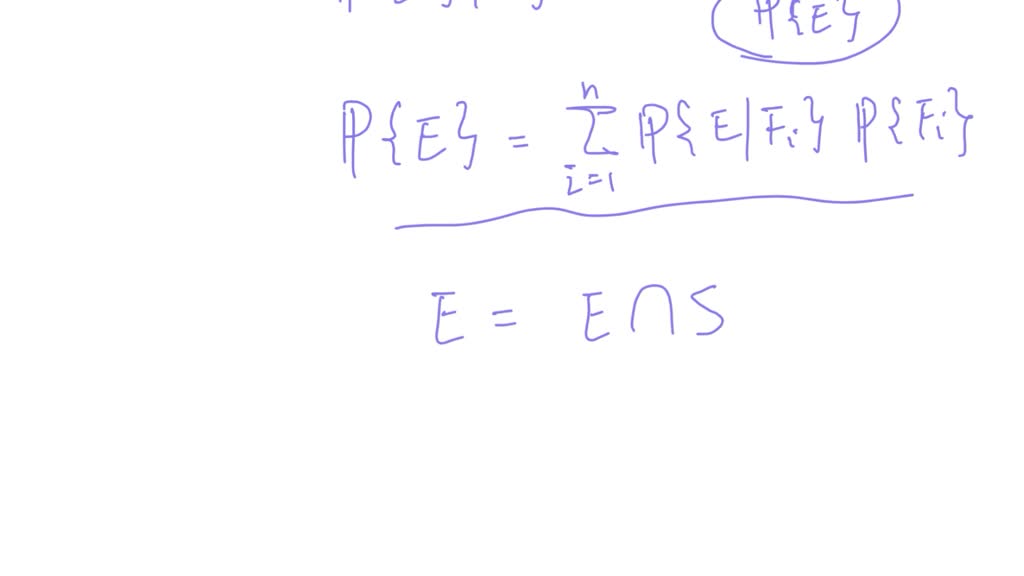 ℙ{E}
ℙ{E} = ∑_{i=1}^{n} ℙ{E|F_i} ℙ{F_i}
E = E ∩ S